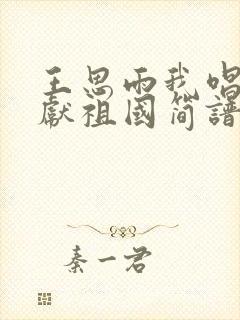 王思雨我唱
獻祖國简譜
秦一君